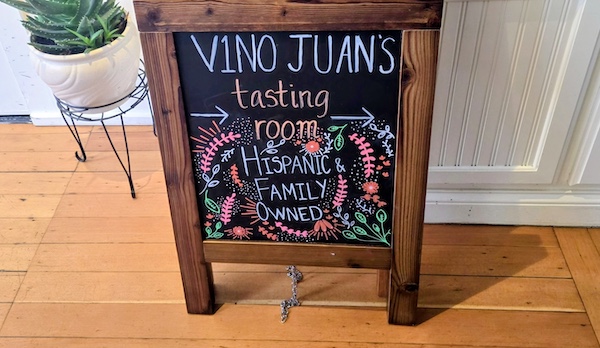 V1NO JUAN'S
tasting
room
HISPANIC &
FAMILY
OWNED